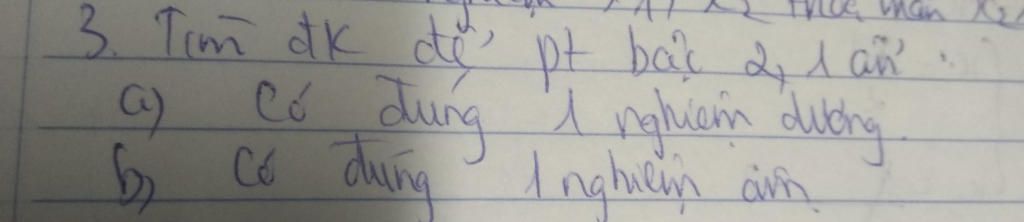 x1, x2 thỏa mãn x2
3. Tìm đk để pt bậc 2, 1 ẩn:
a) Có đúng 1 nghiệm dương.
b) Có đúng 1 nghiệm âm